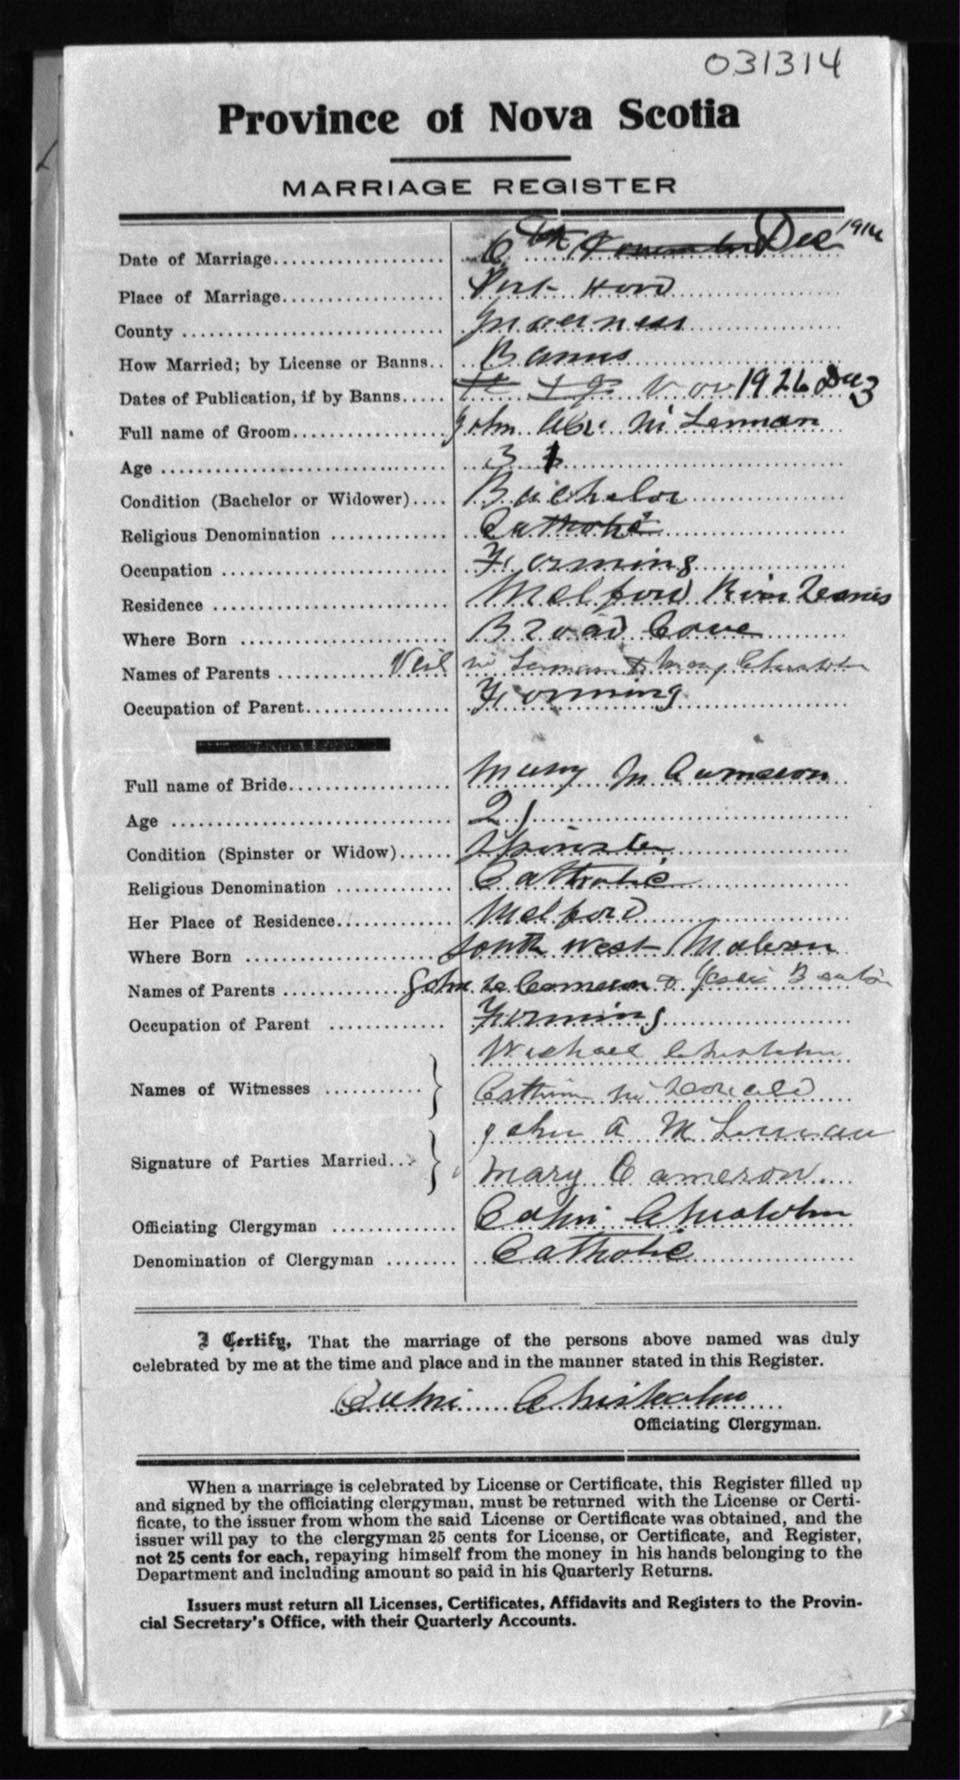 031314
Province of Nova Scotia
MARRIAGE REGISTER
Date of Marriage 6th November Dec 1914
Place of Marriage Port Hood
County Inverness
How Married; by License or Banns Banns
Dates of Publication, if by Banns Nov 19 26 Dec 3
Full name of Groom John Alex. McLennan
Age 31
Condition (Bachelor or Widower) Bachelor
Religious Denomination Catholic
Occupation Farming
Residence Melford River Dennis
Where Born Broad Cove
Names of Parents Neil McLennan & Mary Chisholm
Occupation of Parent Farming
Full name of Bride Mary M Cameron
Age 21
Condition (Spinster or Widow) Spinster
Religious Denomination Catholic
Her Place of Residence Melford
Where Born South West Mabou
Names of Parents John Cameron & Beaton
Occupation of Parent Farming
Names of Witnesses Michael Chisholm
McDonald
Signature of Parties Married John A McLennan
Mary Cameron.
Officiating Clergyman Colin Chisholm
Denomination of Clergyman Catholic
I Certify, That the marriage of the persons above named was duly
celebrated by me at the time and place and in the manner stated in this Register.
Colin Chisholm
Officiating Clergyman.
When a marriage is celebrated by License or Certificate, this Register filled up
and signed by the officiating clergyman, must be returned with the License or Certi-
ficate, to the issuer from whom the said License or Certificate was obtained, and the
issuer will pay to the clergyman 25 cents for License, or Certificate, and Register,
not 25 cents for each, repaying himself from the money in his hands belonging to the
Department and including amount so paid in his Quarterly Returns.
Issuers must return all Licenses, Certificates, Affidavits and Registers to the Provin-
cial Secretary's Office, with their Quarterly Accounts.